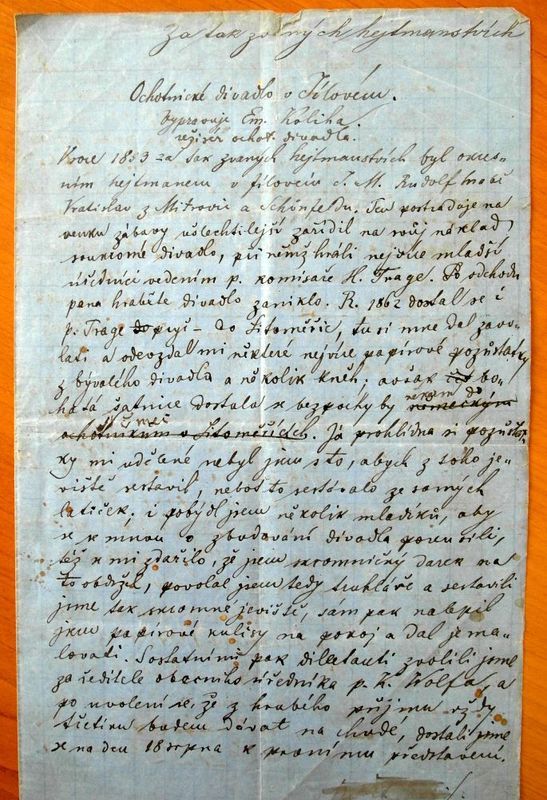 Za tak zvaných hejtmanstvích
Ochotnické divadlo v Jílovém.
Vypravuje Em. Koliha,
režisér ochot. divadla.
Roce 1853 za tak zvaných hejtmanstvích byl okres-
ním hejtmanem v Jílovém J. M. Rudolf hrabě
Vratislav z Mitrovic a Schönfeldu. Ten postrádaje na
venku zábavy ušlechtilejší zařídil na svůj náklad
soukromé divadlo, při němž hráli nejvíce mladší
úředníci vedením p. komisaře H. Trage. Po odchodu
pana hraběte divadlo zaniklo. R. 1862 dostal se i
p. Trage pryč – do Litoměřic, tu si mne dal zavo-
lati a odevzdal mi některé nejvíce papírové pozůstatky
z bývalého divadla a několik kněh; avšak bo-
hatá šatnice dostala se bezpochyby někam do
německým
ochotníkům v Litoměřicích. Já prohlídna si pozůstat-
ky mi udělené nebyl jsem s to, abych z toho je-
viště sestavil, neboť to sestávalo ze samých
latiček; i pobýdl jsem několik mladíků, aby
se k mnou o zbudování divadla pokusili,
též se mi zdařilo, že jsem skromničký dárek na
to obdržel, povolal jsem tedy truhláře a sestavili
jsme tak skromné jeviště, sám pak nalepil
jsem papírové kulisy na pokoj a dal je ma-
lovati. S ostatními pak diletanti zvolili jsme
za ředitele obecního úředníka p. K. Wolfa, a
po uvolení se, že z hrubého příjmu vždy
třetinu budem dávat na chudé, dostali jsme
se na den 18 srpna k prvnímu představení.